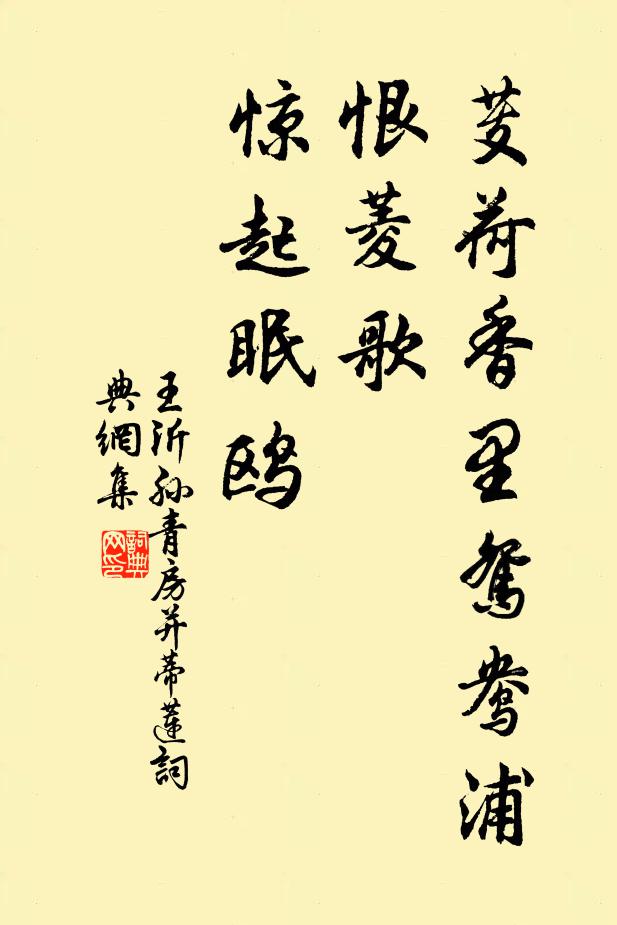 芰荷香里鸳鸯浦
恨菱歌
惊起眠鸥
王沂孙青房并蒂莲詞
典網集
詞典网印